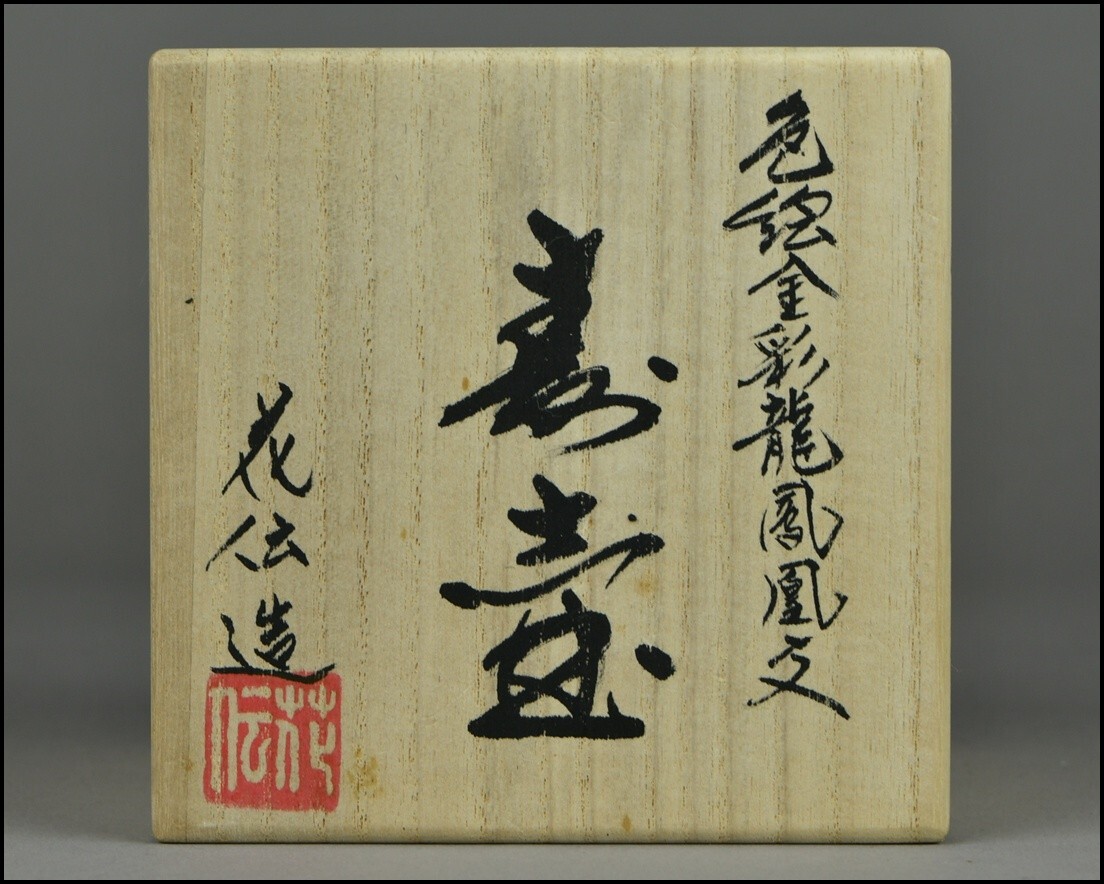 色絵金彩龍鳳凰文
寿壺
花伝造
花伝